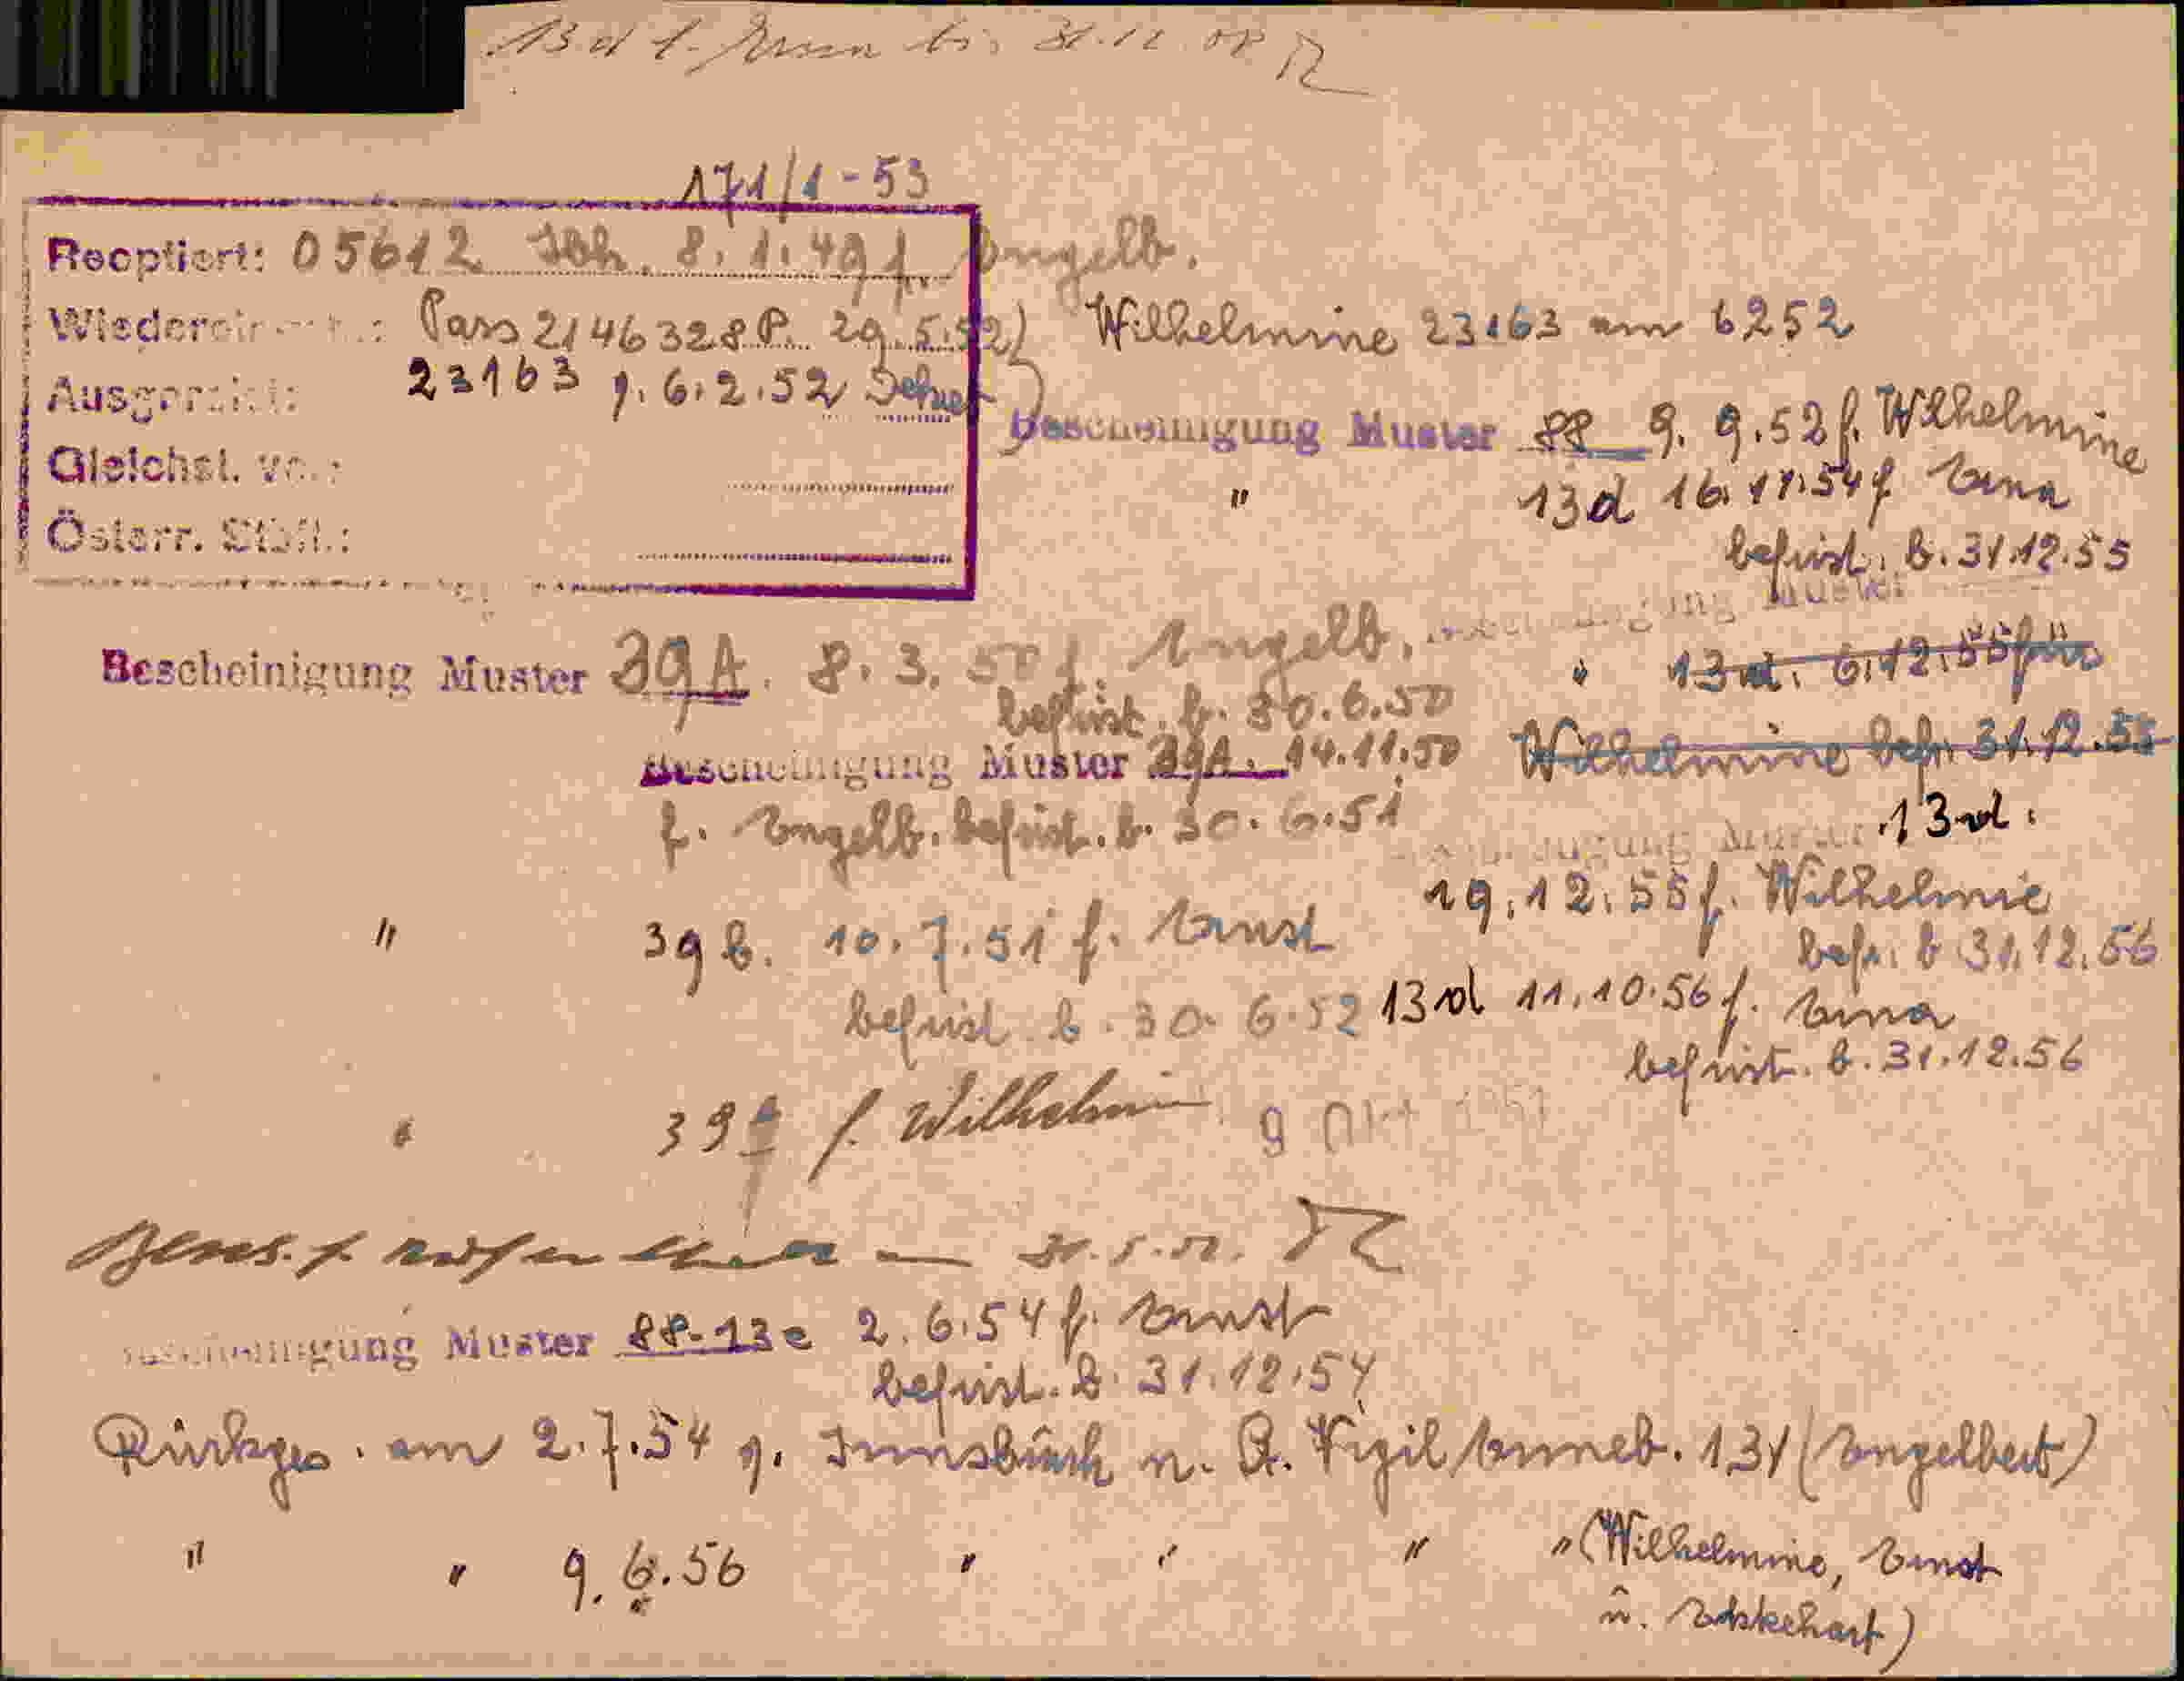 13 d f. Erna bis 31.12.
171/1-53
Reoptiert: 05612 Ibk. 8.1.49 f. Engelb.
Pass 2146328 P. 29.5.52)
23163 g. 6.2.52
Gleichst.
Österr.
Wilhelmine 23163 am 6252
Bescheinigung Muster 88 9.9.52 f. Wilhelmine
" 13d 16.11.54 f. Erna
befrist. b. 31.12.55
Bescheinigung Muster
" 13d. 6.12.55 für
Wilhelmine befr. 31.12.55
Bescheinigung Muster 13d.
19.12.55 f. Wilhelmie
befr. b 31.12.56
13d 11.10.56 f. Erna
befrist. b. 31.12.56
Bescheinigung Muster 39A. 8.3.50 f. Engelb.
befrist. b. 30.6.50
Bescheinigung Muster 39A. 14.11.50
f. Engelb. befrist. b. 30.6.51
" 39 b. 10.7.51 f. Ernst
befrist. b. 30.6.52
" 39 f. Wilhelmin 9 Okt 1951
Bescheinigung Muster 88-13e 2.6.54 f. Ernst
befrist. b. 31.12.54
Rückges. am 2.7.54 g. Innsbruck n. St. Vigil Enneb. 131 (Engelbert)
" " 9.6.56 " " " " (Wilhelmine, Ernst
u. )